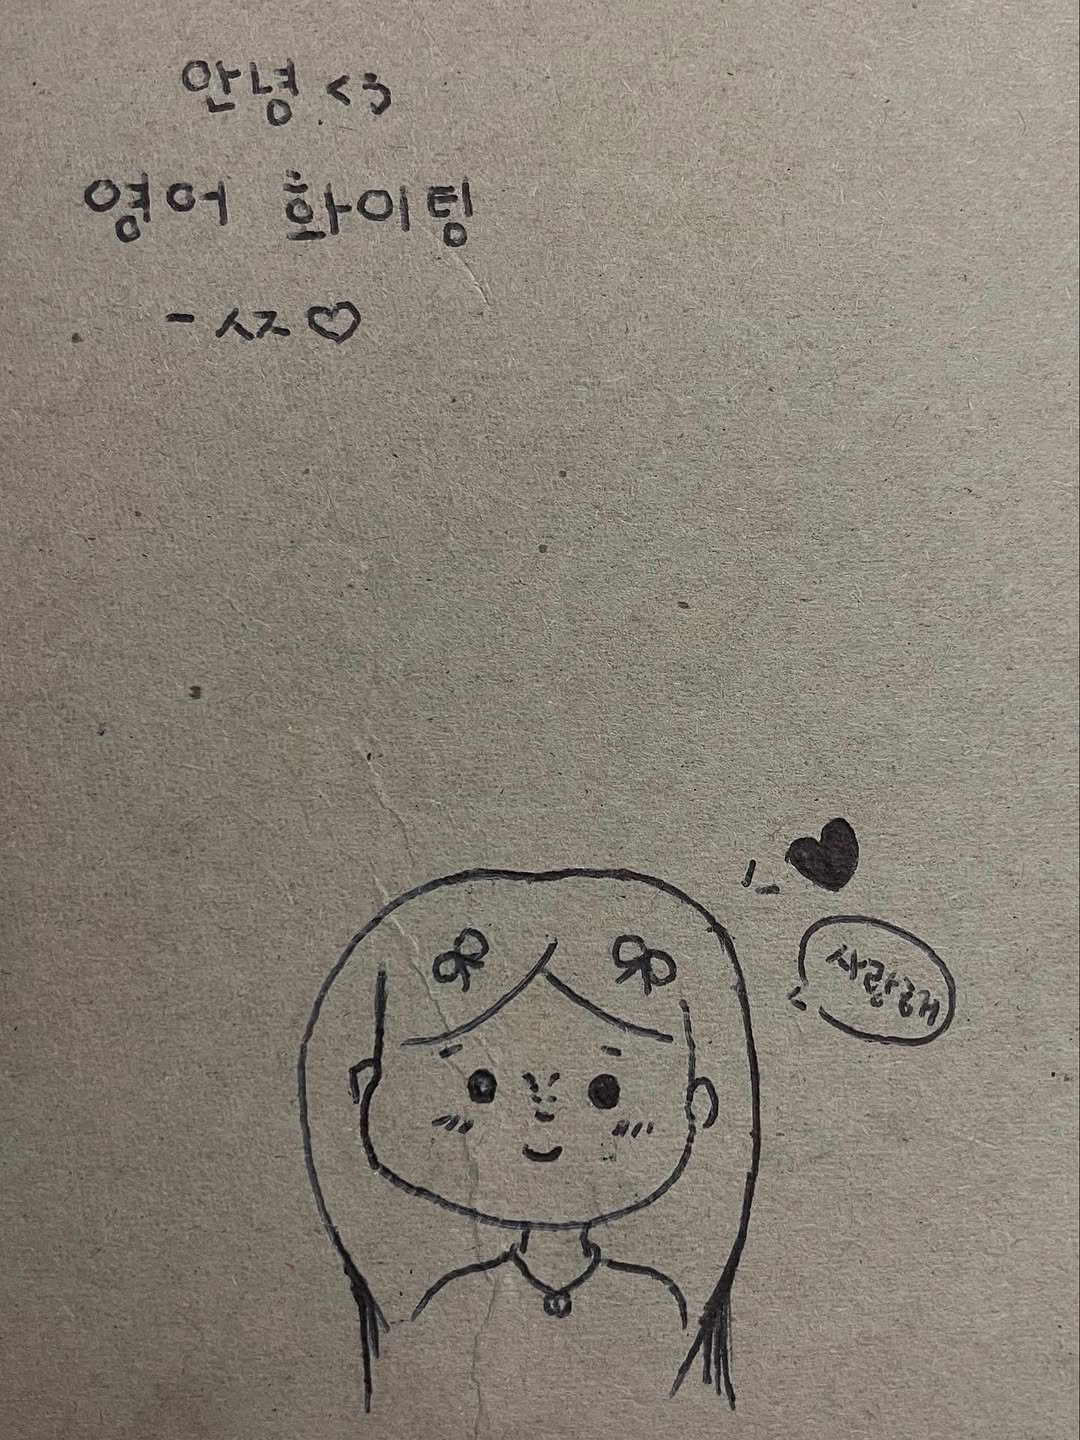 안녕 <3
영어 화이팅
- ㅅㅈ ♡
사랑해